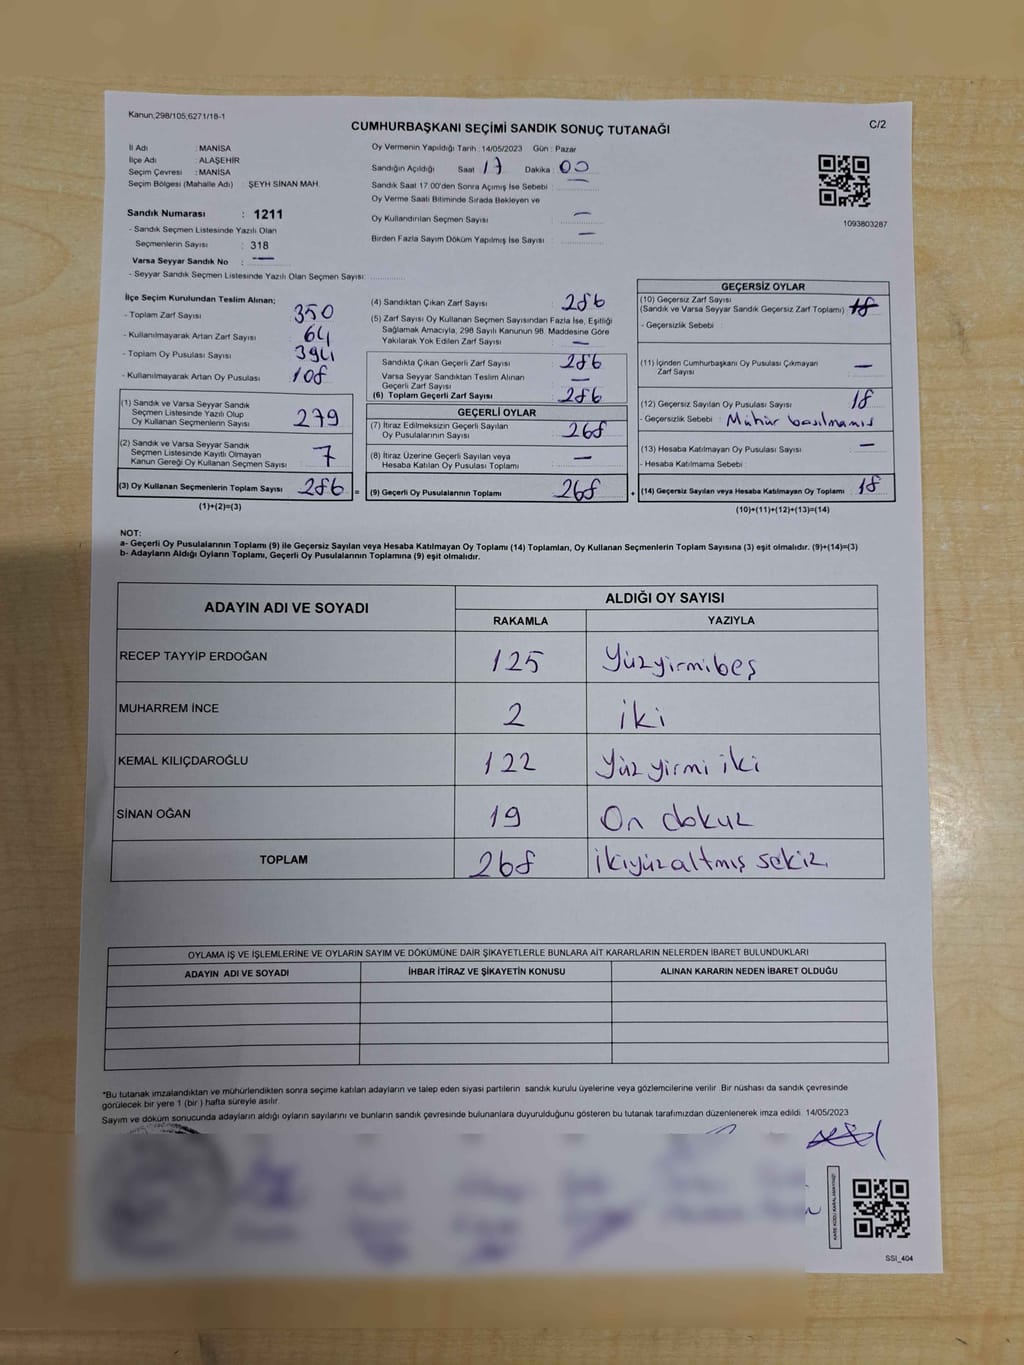 Kanun;298/105;6271/18-1
CUMHURBAŞKANI SEÇİMİ SANDIK SONUÇ TUTANAĞI
C/2
İl Adı : MANİSA
İlçe Adı : ALAŞEHİR
Seçim Çevresi : MANİSA
Seçim Bölgesi (Mahalle Adı) : ŞEYH SİNAN MAH.
Sandık Numarası : 1211
- Sandık Seçmen Listesinde Yazılı Olan
Seçmenlerin Sayısı : 318
Varsa Seyyar Sandık No : —
- Seyyar Sandık Seçmen Listesinde Yazılı Olan Seçmen Sayısı:
Oy Vermenin Yapıldığı Tarih : 14/05/2023 Gün : Pazar
Sandığın Açıldığı Saat 17 Dakika : 00
Sandık Saat 17.00'den Sonra Açımış İse Sebebi : —
Oy Verme Saati Bitiminde Sırada Bekleyen ve
Oy Kullandırılan Seçmen Sayısı : —
Birden Fazla Sayım Döküm Yapılmış İse Sayısı : —
1093803287
İlçe Seçim Kurulundan Teslim Alınan;
- Toplam Zarf Sayısı : 350
- Kullanılmayarak Artan Zarf Sayısı : 64
- Toplam Oy Pusulası Sayısı : 394
- Kullanılmayarak Artan Oy Pusulası : 108
(1) Sandık ve Varsa Seyyar Sandık
Seçmen Listesinde Yazılı Olup
Oy Kullanan Seçmenlerin Sayısı : 279
(2) Sandık ve Varsa Seyyar Sandık
Seçmen Listesinde Kayıtlı Olmayan
Kanun Gereği Oy Kullanan Seçmen Sayısı : 7
(3) Oy Kullanan Seçmenlerin Toplam Sayısı : 286 =
(1)+(2)=(3)
(4) Sandıktan Çıkan Zarf Sayısı : 286
(5) Zarf Sayısı Oy Kullanan Seçmen Sayısından Fazla İse, Eşitliği
Sağlamak Amacıyla; 298 Sayılı Kanunun 98. Maddesine Göre
Yakılarak Yok Edilen Zarf Sayısı : —
Sandıkta Çıkan Geçerli Zarf Sayısı : 286
Varsa Seyyar Sandıktan Teslim Alınan
Geçerli Zarf Sayısı : —
(6) Toplam Geçerli Zarf Sayısı : 286
GEÇERLİ OYLAR
(7) İtiraz Edilmeksizin Geçerli Sayılan
Oy Pusulalarının Sayısı : 268
(8) İtiraz Üzerine Geçerli Sayılan veya
Hesaba Katılan Oy Pusulası Toplamı : —
(9) Geçerli Oy Pusulalarının Toplamı : 268 +
GEÇERSİZ OYLAR
(10) Geçersiz Zarf Sayısı
(Sandık ve Varsa Seyyar Sandık Geçersiz Zarf Toplamı) : 18
- Geçersizlik Sebebi :
(11) İçinden Cumhurbaşkanı Oy Pusulası Çıkmayan
Zarf Sayısı : —
(12) Geçersiz Sayılan Oy Pusulası Sayısı : 18
- Geçersizlik Sebebi : Mühür basılmamış
(13) Hesaba Katılmayan Oy Pusulası Sayısı : —
- Hesaba Katılmama Sebebi :
(14) Geçersiz Sayılan veya Hesaba Katılmayan Oy Toplamı : 18
(10)+(11)+(12)+(13)=(14)
NOT:
a- Geçerli Oy Pusulalarının Toplamı (9) ile Geçersiz Sayılan veya Hesaba Katılmayan Oy Toplamı (14) Toplamları, Oy Kullanan Seçmenlerin Toplam Sayısına (3) eşit olmalıdır. (9)+(14)=(3)
b- Adayların Aldığı Oyların Toplamı, Geçerli Oy Pusulalarının Toplamına (9) eşit olmalıdır.
ADAYIN ADI VE SOYADI
ALDIĞI OY SAYISI
RAKAMLA YAZIYLA
RECEP TAYYİP ERDOĞAN 125 Yüzyirmibeş
MUHARREM İNCE 2 iki
KEMAL KILIÇDAROĞLU 122 Yüz yirmi iki
SİNAN OĞAN 19 On dokuz
TOPLAM 268 ikiyüzaltmış sekiz
OYLAMA İŞ VE İŞLEMLERİNE VE OYLARIN SAYIM VE DÖKÜMÜNE DAİR ŞİKAYETLERLE BUNLARA AİT KARARLARIN NELERDEN İBARET BULUNDUKLARI
ADAYIN ADI VE SOYADI İHBAR İTİRAZ VE ŞİKAYETİN KONUSU ALINAN KARARIN NEDEN İBARET OLDUĞU
*Bu tutanak imzalandıktan ve mühürlendikten sonra seçime katılan adayların ve talep eden siyasi partilerin sandık kurulu üyelerine veya gözlemcilerine verilir. Bir nüshası da sandık çevresinde
görülecek bir yere 1 (bir ) hafta süreyle asılır.
Sayım ve döküm sonucunda adayların aldığı oyların sayılarını ve bunların sandık çevresinde bulunanlara duyurulduğunu gösteren bu tutanak tarafımızdan düzenlenerek imza edildi. 14/05/2023
KARE KODU KARALAMAYINIZ!
SSI_404